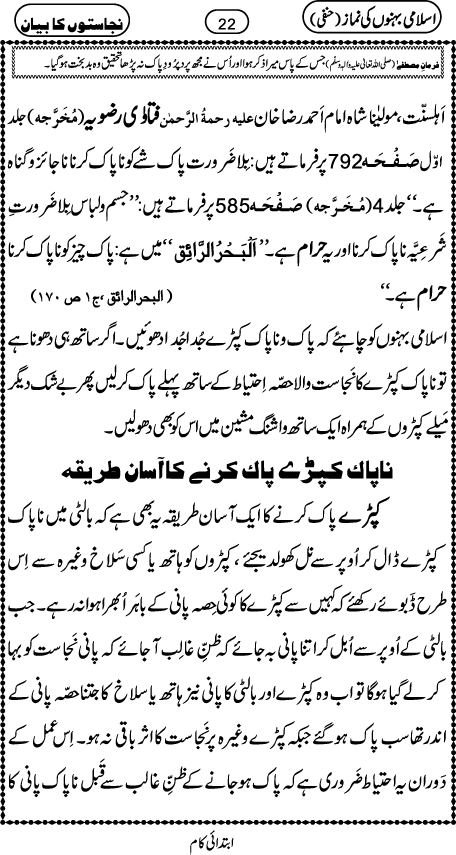 اسلامی بہنوں کی نماز (حنفی)
22
نجاستوں کا بیان
فرمانِ مصطفےٰ (صلی اللہ تعالیٰ علیہ والہ وسلم) جس کے پاس میرا ذکر ہوا اور اُس نے مجھ پر دُرُودِ پاک نہ پڑھا تحقیق وہ بد بخت ہو گیا۔
اَہلسنّت، مولیٰنا شاہ امام اَحمد رضا خان علیہ رحمۃُ الرَّحمٰن فتاوٰی رضویہ (مُخَرَّجہ) جلد
اوّل صَفْحَہ 792 پر فرماتے ہیں: بِلاضَرورت پاک شے کو ناپاک کرنا ناجائز و گناہ
ہے۔‘‘ جلد 4 (مُخَرَّجہ) صَفْحَہ 585 پر فرماتے ہیں: ’’جسم و لباس بِلا ضَرورتِ
شَرعِیَّہ ناپاک کرنا اور یہ حرام ہے۔‘‘ اَلْبَحْرُ الرَّائِق ‘‘ میں ہے: پاک چیز کو ناپاک کرنا
حرام ہے۔‘‘ (البحرالرائق ،ج۱ ص ۱۷۰)
اسلامی بہنوں کو چاہئے کہ پاک و ناپاک کپڑے جُدا جُدا دھوئیں۔ اگر ساتھ ہی دھونا ہے
تو ناپاک کپڑے کا نَجاست والا حصّہ اِحتیاط کے ساتھ پہلے پاک کر لیں پھر بے شک دیگر
مَیلے کپڑوں کے ہمراہ ایک ساتھ واشنگ مشین میں اس کو بھی دھو لیں۔
ناپاک کپڑے پاک کرنے کا آسان طریقہ
کپڑے پاک کرنے کا ایک آسان طریقہ یہ بھی ہے کہ بالٹی میں ناپاک
کپڑے ڈال کر اُوپر سے نل کھول دیجئے ، کپڑوں کو ہاتھ یا کسی سَلاخ وغیرہ سے اِس
طرح ڈَبوئے رکھئے کہ کہیں سے کپڑے کا کوئی حِصہ پانی کے باہَر اُبھرا ہوا نہ رہے۔ جب
بالٹی کے اُوپر سے اُبل کر اتنا پانی بہ جائے کہ ظنِّ غالِب آ جائے کہ پانی نَجاست کو بہا
کر لے گیا ہوگا تو اب وہ کپڑے اور بالٹی کا پانی نیز ہاتھ یا سلاخ کا جتنا حصّہ پانی کے
اندر تھا سب پاک ہو گئے جبکہ کپڑے وغیرہ پر نَجاست کا اثر باقی نہ ہو۔ اِس عمل کے
دَوران یہ احتیاط ضَروری ہے کہ پاک ہوجانے کے ظنِّ غالب سے قَبل ناپاک پانی کا
ابتدائی کام